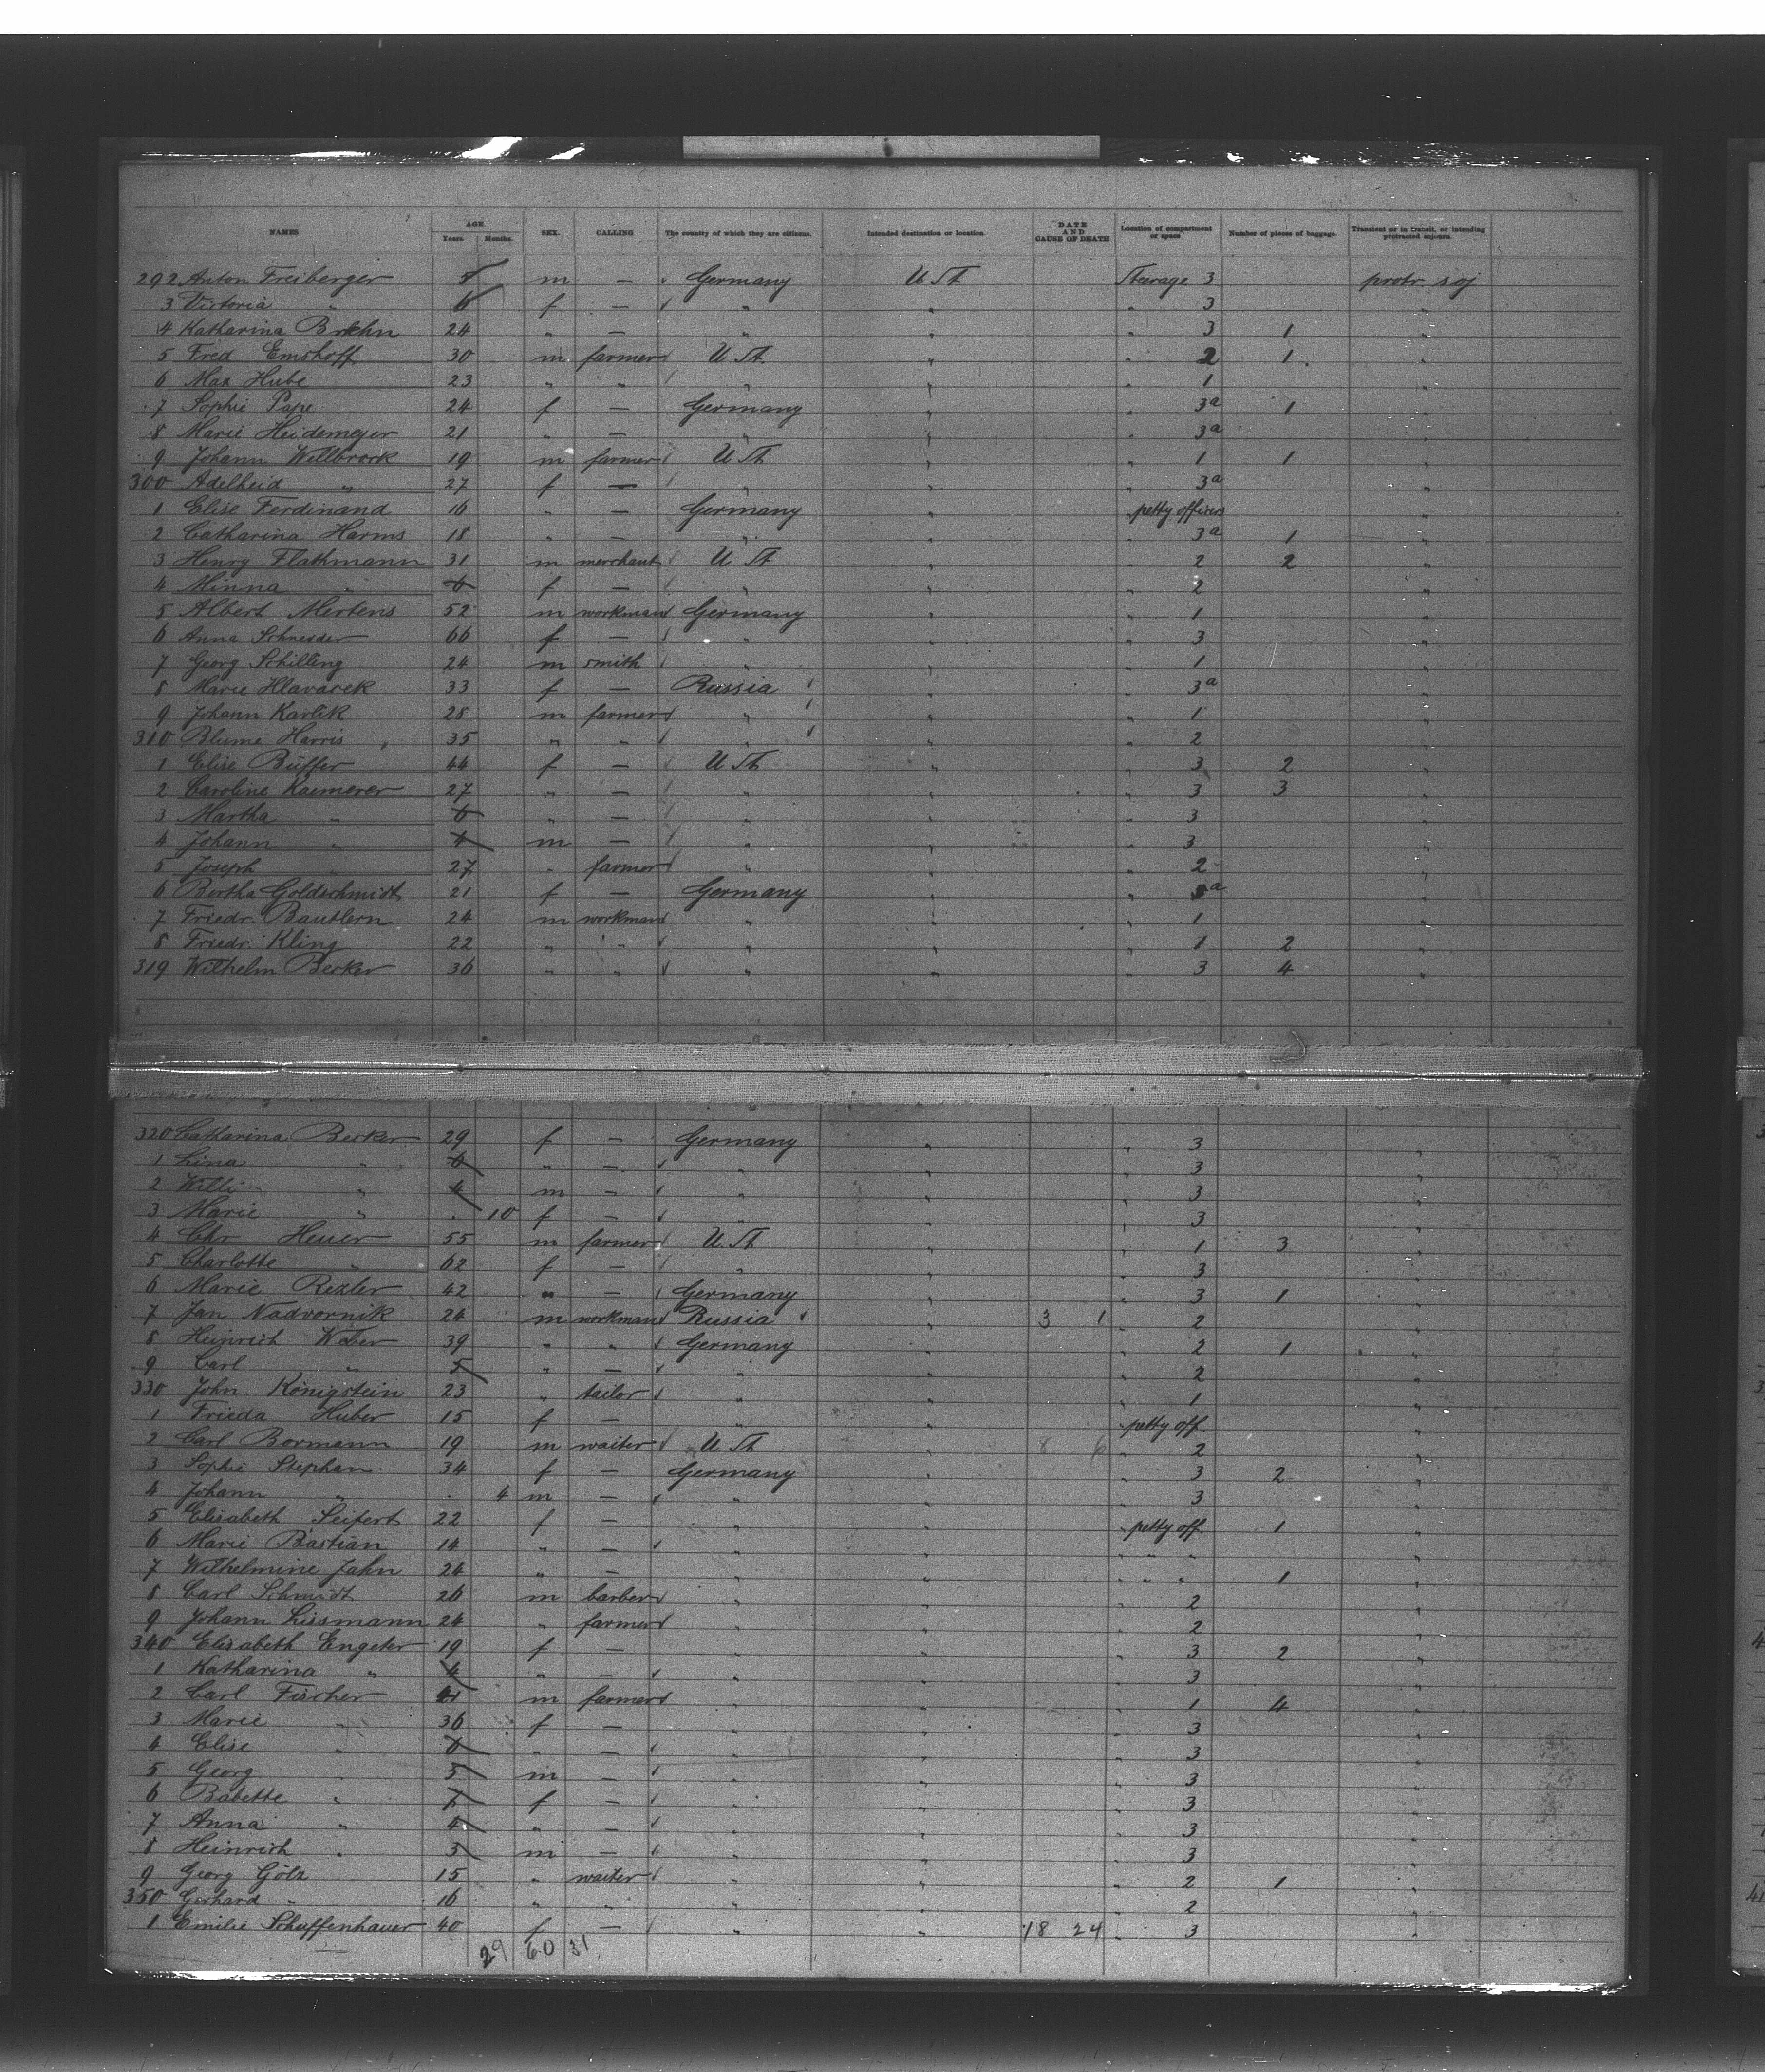 NAMES AGE. Years. Months. SEX. CALLING The country of which they are citizens. Intended destination or location DATE AND CAUSE OF DEATH Location of compartment or space Number of pieces of baggage. Transient or in transit, or intending protracted sojourn.
292 Anton Freiberger m — Germany U St Steerage 3 protr. soj
3 Victoria 6 f — " " " 3 "
4 Katharina 24 " — " " " 3 1 "
5 Fred Emshoff 30 m farmer U St. " " 2 1 "
6 Max Hube 23 " " " " " 1 "
7 Sophie Pape 24 f — Germany " " 3a 1 "
8 Marie Heidemeyer 21 " — " " " 3a "
9 Johann Wellbrock 19 m farmer U St " " 1 1 "
300 Adelheid " 27 f — " " " 3a "
1 Elise Ferdinand 16 " — Germany " petty officers "
2 Catharina Harms 18 " — " " " 3a 1 "
3 Henry Flathmann 31 m merchant U St " " 2 2 "
4 Minna " 6 f — " " " 2 "
5 Albert Mertens 52 m workman Germany " " 1 "
6 Anna Schneider 66 f — " " " 3 "
7 Georg Schilling 24 m smith " " " 1 "
8 Marie Hlavacek 33 f — Russia " " 3a "
9 Johann Karlik 28 m farmer " " " 1 "
310 Blume Harris 35 " " " " " 2 "
1 Elise Büffer 44 f — U St " " 3 2 "
2 Caroline Kaemerer 27 " — " " " 3 3 "
3 Martha " 6 " — " " " 3 "
4 Johann " 4 m — " " " 3 "
5 Joseph " 27 " farmer " " " 2 "
6 Bertha Goldschmidt 21 f — Germany " " "
7 Friedr. Bautlern 24 m workman " " " 1 "
8 Friedr. Kling 22 " " " " " 1 2 "
319 Wilhelm Becker 36 " " " " " 3 4 "
320 Catharina Becker 29 f — Germany " " 3 "
1 Lina " 6 " — " " " 3 "
2 Willi " 4 m — " " " 3 "
3 Marie " . 10 f — " " " 3 "
4 Chr Heuer 55 m farmer U. St " " 1 3 "
5 Charlotte " 62 f — " " " 3 "
6 Marie Rexler 42 " — Germany " " 3 1 "
7 Jan Nadvornik 24 m workman Russia " 3 1 " 2 "
8 Heinrich Weber 39 " " Germany " " 2 1 "
9 Carl " 5 " — " " " 2 "
330 John Königstein 23 " tailor " " " 1 "
1 Frieda Huber 15 f — " " petty off. "
2 Carl Bormann 19 m waiter U St " 8 6 " 2 "
3 Sophie Stephan 34 f — Germany " " 3 2 "
4 Johann " . 4 m — " " " 3 "
5 Elisabeth Seifert 22 f — " " petty off. 1 "
6 Marie Bastian 14 " — " " " " "
7 Wilhelmine Jahn 24 " — " " " " 1 "
8 Carl Schmidt 26 m barber " " " 2 "
9 Johann Lissmann 24 " farmer " " " 2 "
340 Elisabeth Engeter 19 f — " " " 3 2 "
1 Katharina " 4 " — " " " 3 "
2 Carl Fischer m farmer " " " 1 4 "
3 Marie " 36 f — " " " 3 "
4 Elise " 6 " — " " " 3 "
5 Georg " 5 m — " " " 3 "
6 Babette " f — " " " 3 "
7 Anna " 4 " — " " " 3 "
8 Heinrich " 3 m — " " " 3 "
9 Georg Götz 15 " waiter " " " 2 1 "
350 Gerhard " 16 " " " " " 2 "
1 Emilie Schuffenhauer 40 f — " " 18 24 " 3 "
29 60 31